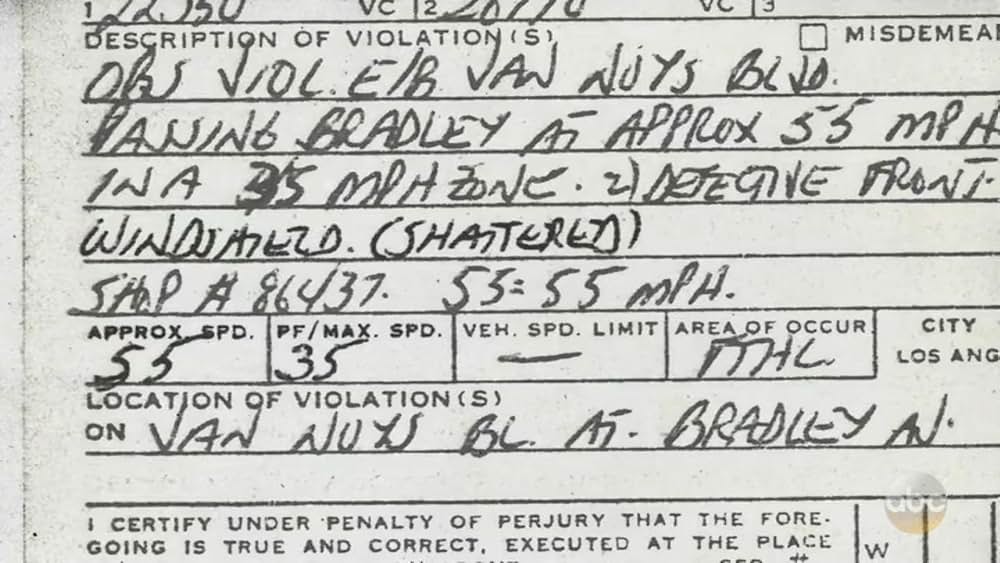 1 22350 VC 2 VC 3
DESCRIPTION OF VIOLATION(S) MISDEMEA
OBS VIOL. E/B VAN NUYS BLVD.
PASSING BRADLEY AT APPROX 55 MPH
IN A 35 MPH ZONE. 2) DEFECTIVE FRONT
WINDSHIELD. (SHATTERED)
SHOP # 86437. 55=55 MPH.
APPROX. SPD. PF/MAX. SPD. VEH. SPD. LIMIT AREA OF OCCUR CITY
55 35 — LOS ANG
LOCATION OF VIOLATION(S)
ON VAN NUYS BL. AT. BRADLEY AV.
abc
I CERTIFY UNDER PENALTY OF PERJURY THAT THE FORE-
GOING IS TRUE AND CORRECT, EXECUTED AT THE PLACE
W